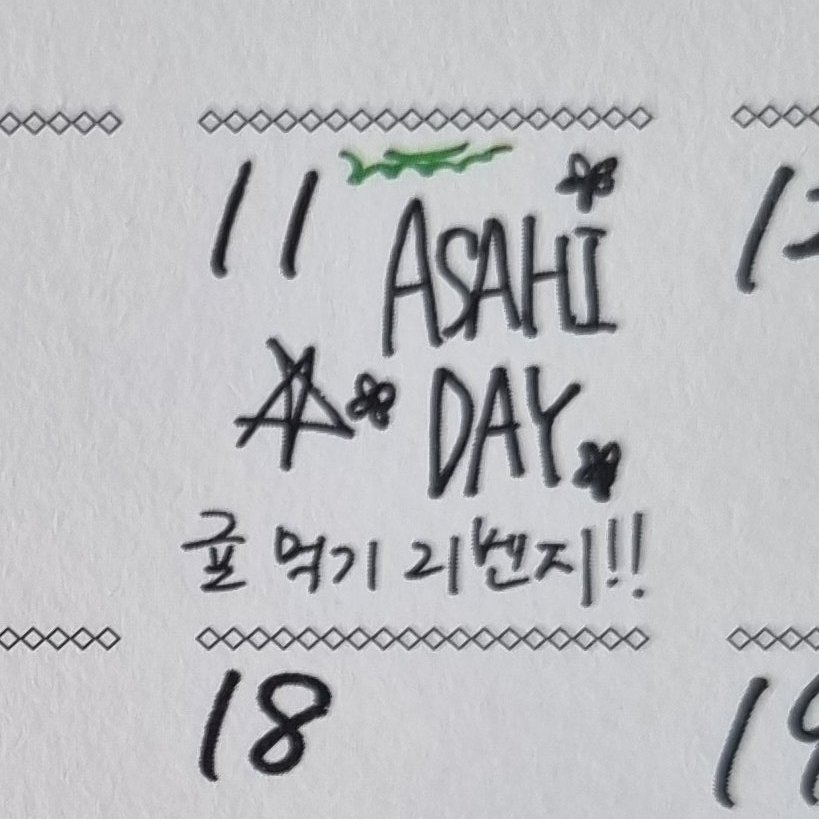 11 ASAHI 12
DAY
귤 먹기 리벤지!!
18 19